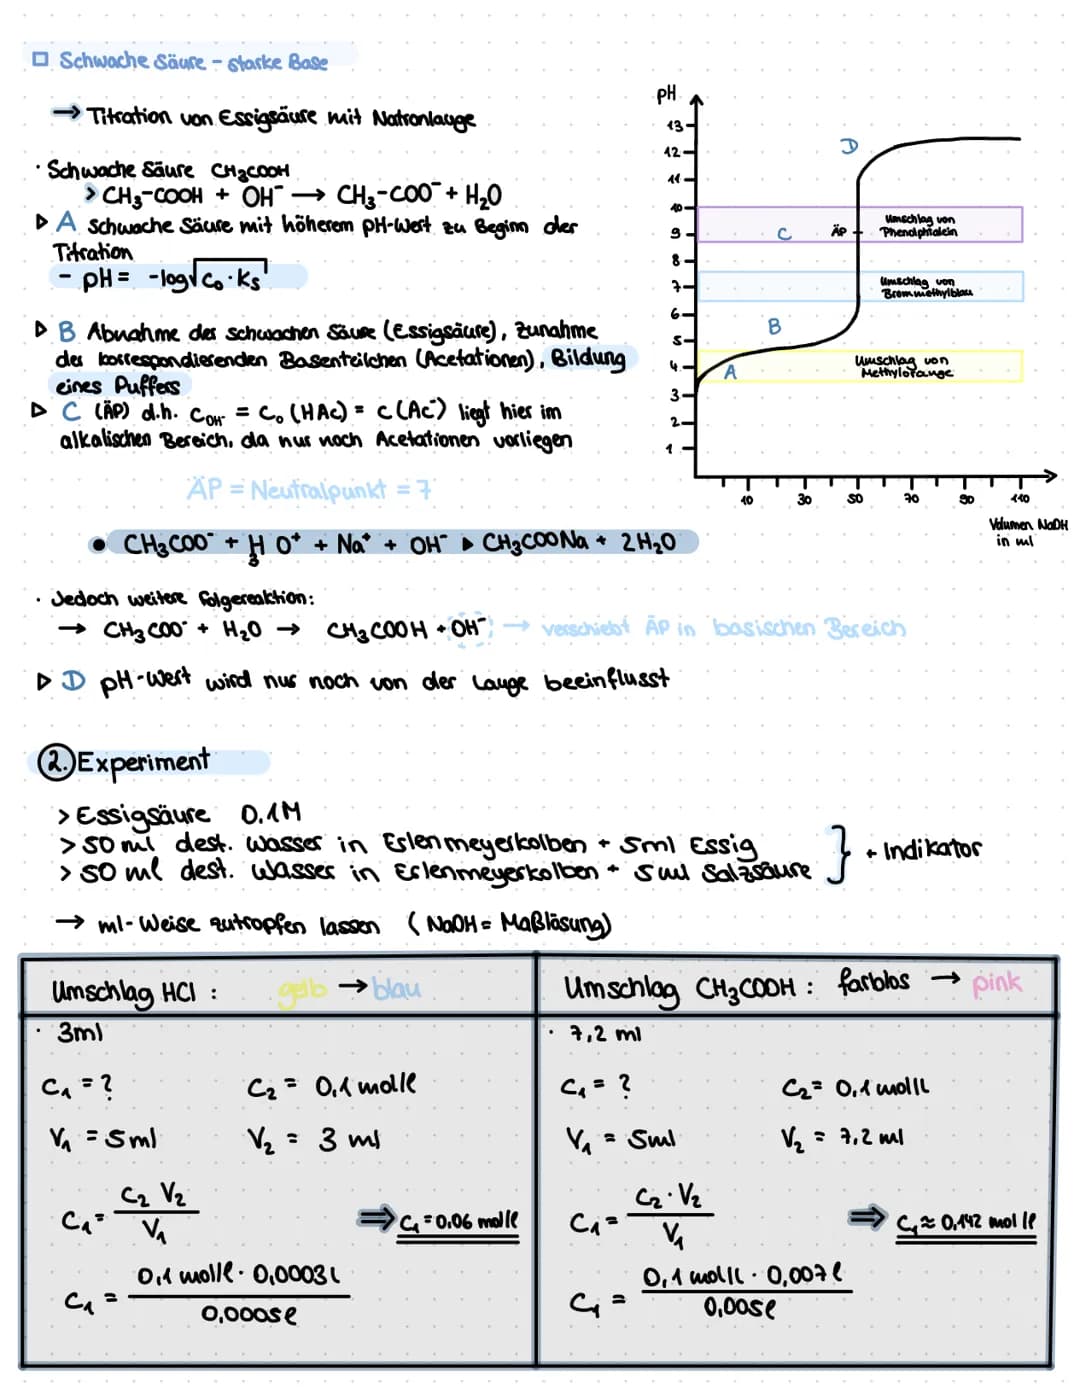 Schwache Säure - starke Base
→ Titration von Essigsäure mit Natronlauge
· Schwache Säure CH₃COOH
> CH₃-COOH + OH⁻ → CH₃-COO⁻ + H₂O
▷ A Schwache Säure mit höherem pH-Wert zu Beginn der
Titration
- pH = -log√c₀·Ks
▷ B Abnahme der schwachen Säure (Essigsäure), Zunahme
der korrespondierenden Basenteilchen (Acetationen), Bildung
eines Puffers
▷ C (ÄP) d.h. c_OH⁻ = c₀ (HAc) = c(Ac⁻) liegt hier im
alkalischen Bereich, da nur noch Acetationen vorliegen
ÄP = Neutralpunkt = 7
• CH₃COO⁻ + H₃O⁺ + Na⁺ + OH⁻ ▸ CH₃COONa + 2H₂O
pH
13
12
11
10
9
8
7
6
5
4
3
2
1
D
C
ÄP
B
A
Umschlag von
Phenolphtalein
Umschlag von
Brommethylblau
Umschlag von
Methylorange
10 30 50 70 90 110
Volumen NaOH
in ml
· Jedoch weitere Folgereaktion:
→ CH₃COO⁻ + H₂O → CH₃COOH + OH⁻ → verschiebt ÄP in basischen Bereich
▷ D pH-Wert wird nur noch von der Lauge beeinflusst
2. Experiment
> Essigsäure 0,1M
> 50 ml dest. Wasser in Erlenmeyerkolben + 5ml Essig
> 50 ml dest. Wasser in Erlenmeyerkolben + 5ml Salzsäure
} + Indikator
→ ml-Weise zutropfen lassen (NaOH = Maßlösung)
Umschlag HCl : gelb → blau
· 3ml
C₁ = ? C₂ = 0,1 mol/l
V₁ = 5ml V₂ = 3 ml
C₁ = C₂ V₂ / V₁ ⇒ C₁ = 0,06 mol/l
C₁ = 0,1 mol/l · 0,0003L / 0,0005l
Umschlag CH₃COOH : farblos → pink
· 7,2 ml
C₁ = ? C₂ = 0,1 mol/L
V₁ = 5ml V₂ = 7,2 ml
C₁ = C₂ · V₂ / V₁ ⇒ C₁ ≈ 0,142 mol/l
C₁ = 0,1 mol/L · 0,007l / 0,005l